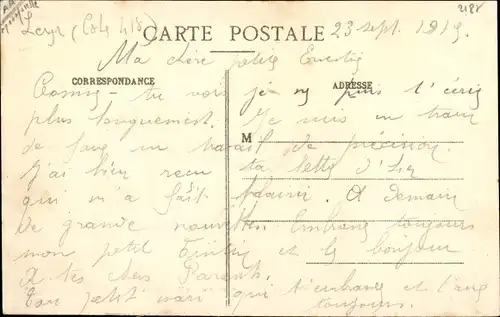 2188
Leyr (Cote 418)
CARTE POSTALE
23 sept. 1915.
Ma chère petite
CORRESPONDANCE
ADRESSE
Comme tu vois je ny puis t'écrire
plus longuement. Je suis en train
M
de faire un travail de précision.
J'ai bien reçu ta lettre d'hier
qui m'a fait plaisir. A demain
De grande nouvelles. Embrasse toujours
mon petit et le bonjour
A tes chers Parents.
Ton petit mari qui t'embrasse et t'aime
toujours.